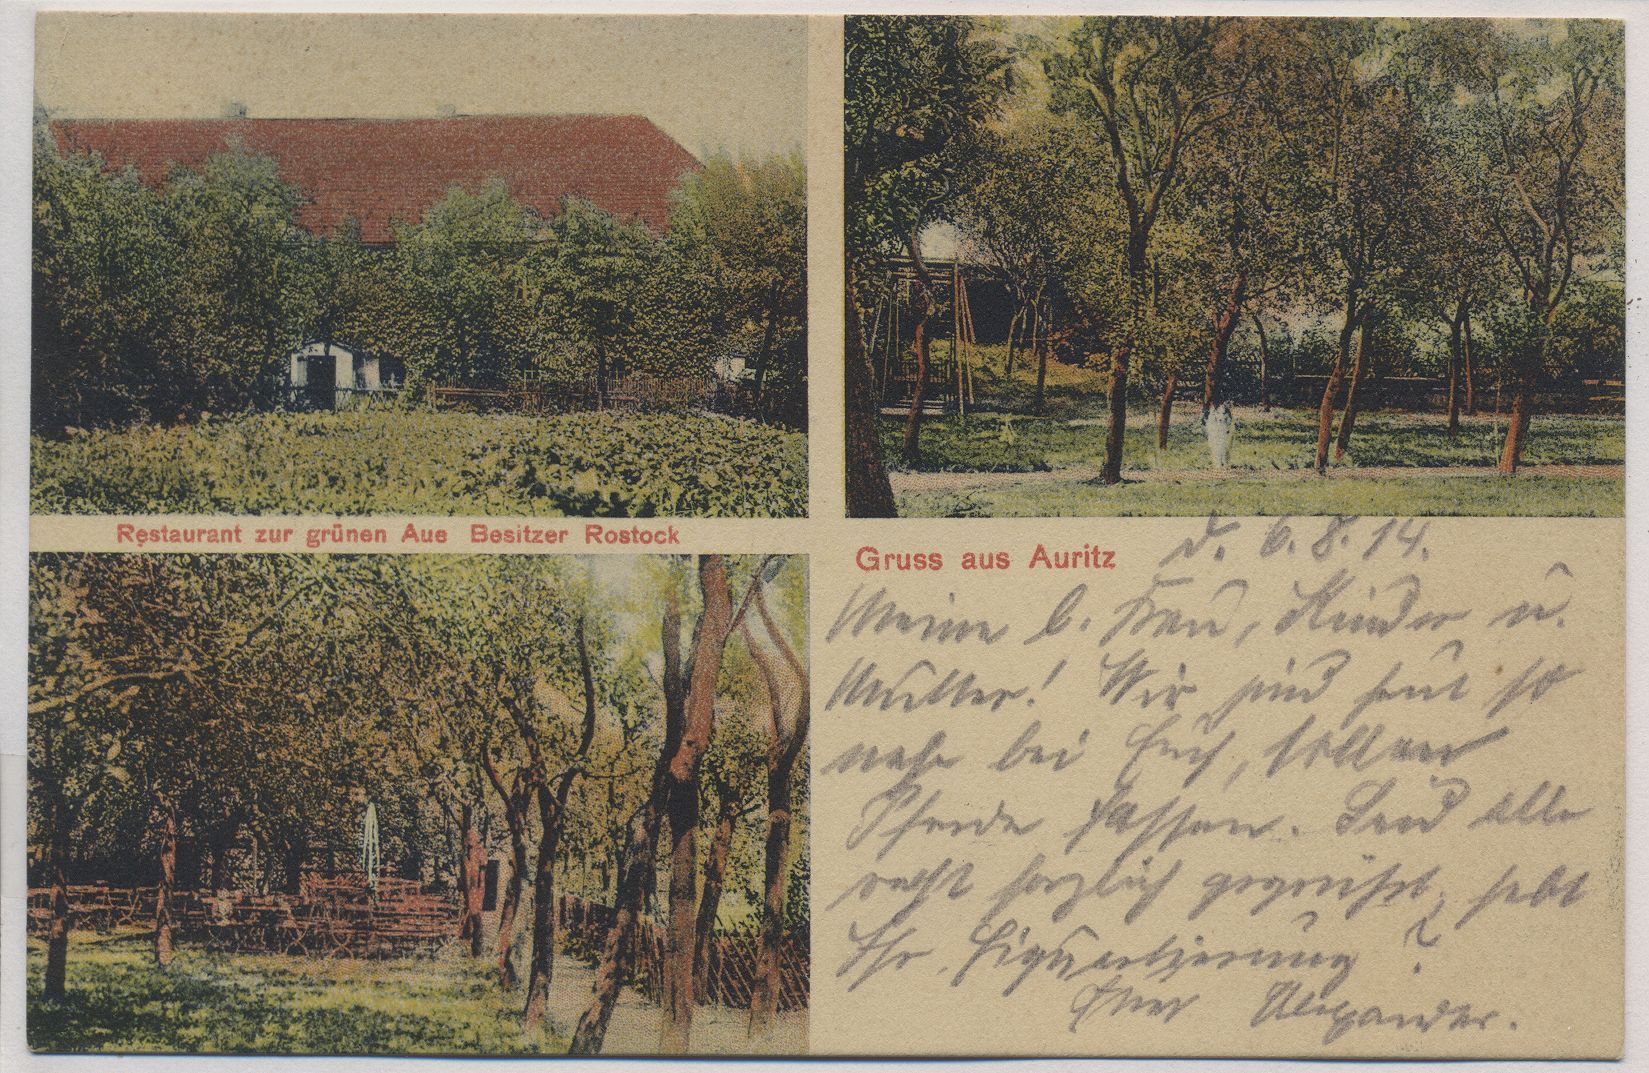 Restaurant zur grünen Aue Besitzer Rostock
Gruss aus Auritz
d. 6. 8. 14.
Meine l. Frau, Kinder u.
Mutter! Wir sind heut so
nahe bei Euch, sollen
Pferde fassen. Seid alle
recht herzlich gegrüßt, habt
Ihr Einquartierung?
Euer Alexander.